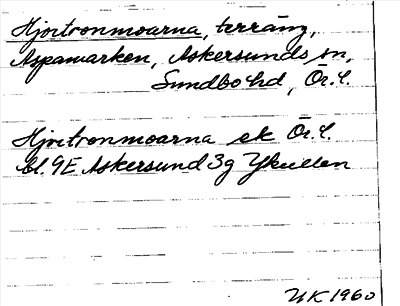 Hjortronmoarna, terräng,
Aspamarken, Askersunds sn,
Sundbo hd, Ör. l.
Hjortronmoarna ek Ör. l.
bl. 9E Askersund 3g Ykullen
UK 1960